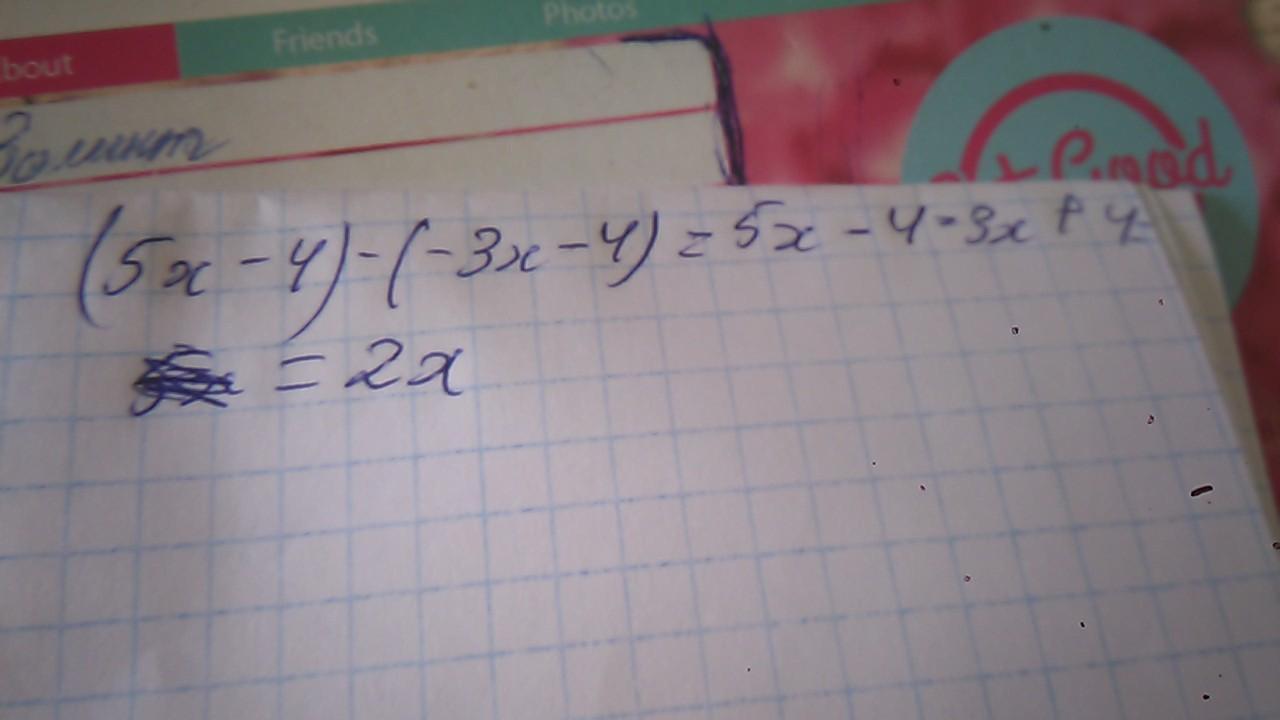 About
Friends
Photos
Good
(5x-4)-(-3x-4)=5x-4-3x+4=
=2x